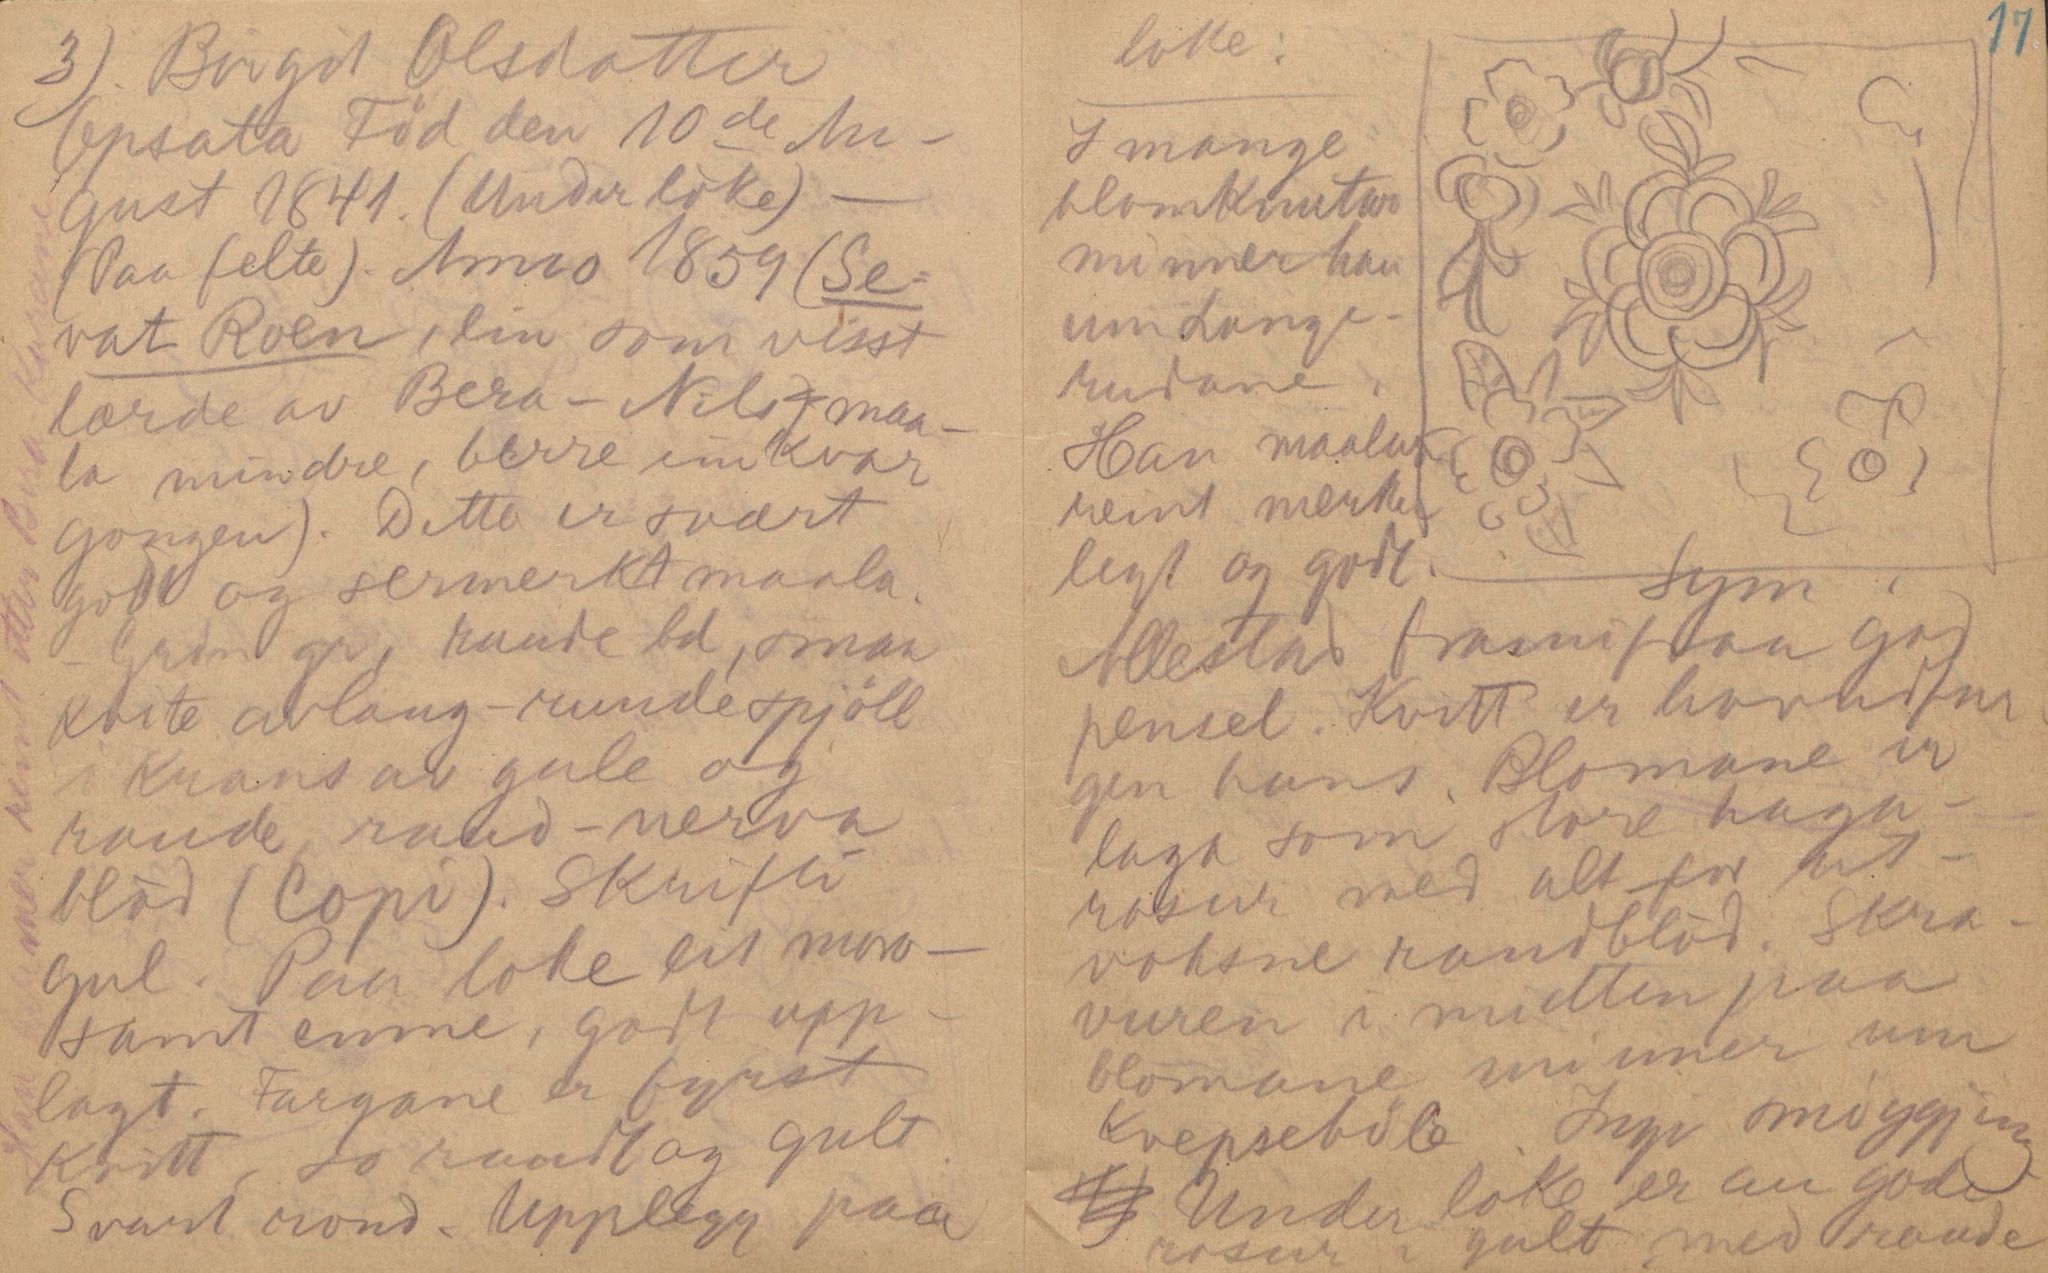 17
3). Birgit Olsdatter
Opsata Föd den 10de Au-
gust 1841. (Under löke) —
(Paa felte). Anno 1859 (Se-
vat Roen, ein som visst
lærde av Bera-Nils, maa-
la mindre, berre ein kvar
gongen). Dette er svært
godt og sermerkt maala.
Grön gr, raude bd, smaa
kvite avlang-runde spjöll
i krans av gule og
raude, raud-nerva
blöd (Copi). Skrifti
gul. Paa loke eit moro-
samt emne, godt upp-
lagt. Fargane er fyrst
kvitt, so raudt og gult.
Svart rond. Upplegg paa
Han minner reint etter Bera-Kunsane
loke:
I mange
blomknutar
minner han
um Lange-
rudane.
Han maalar
reint merke-
legt og godt.
Sym i
Allestad framifraa god
pensel. Kvitt er hovudfar
gen hans. Blomane er
laga som store haga-
rosur med alt for ut-
voksne randblöd. Skra-
vuren i midtten paa
blomane minner um
kvepseböle. Ingi smöygjing
Under loke er au gode
rosur i gult med raude